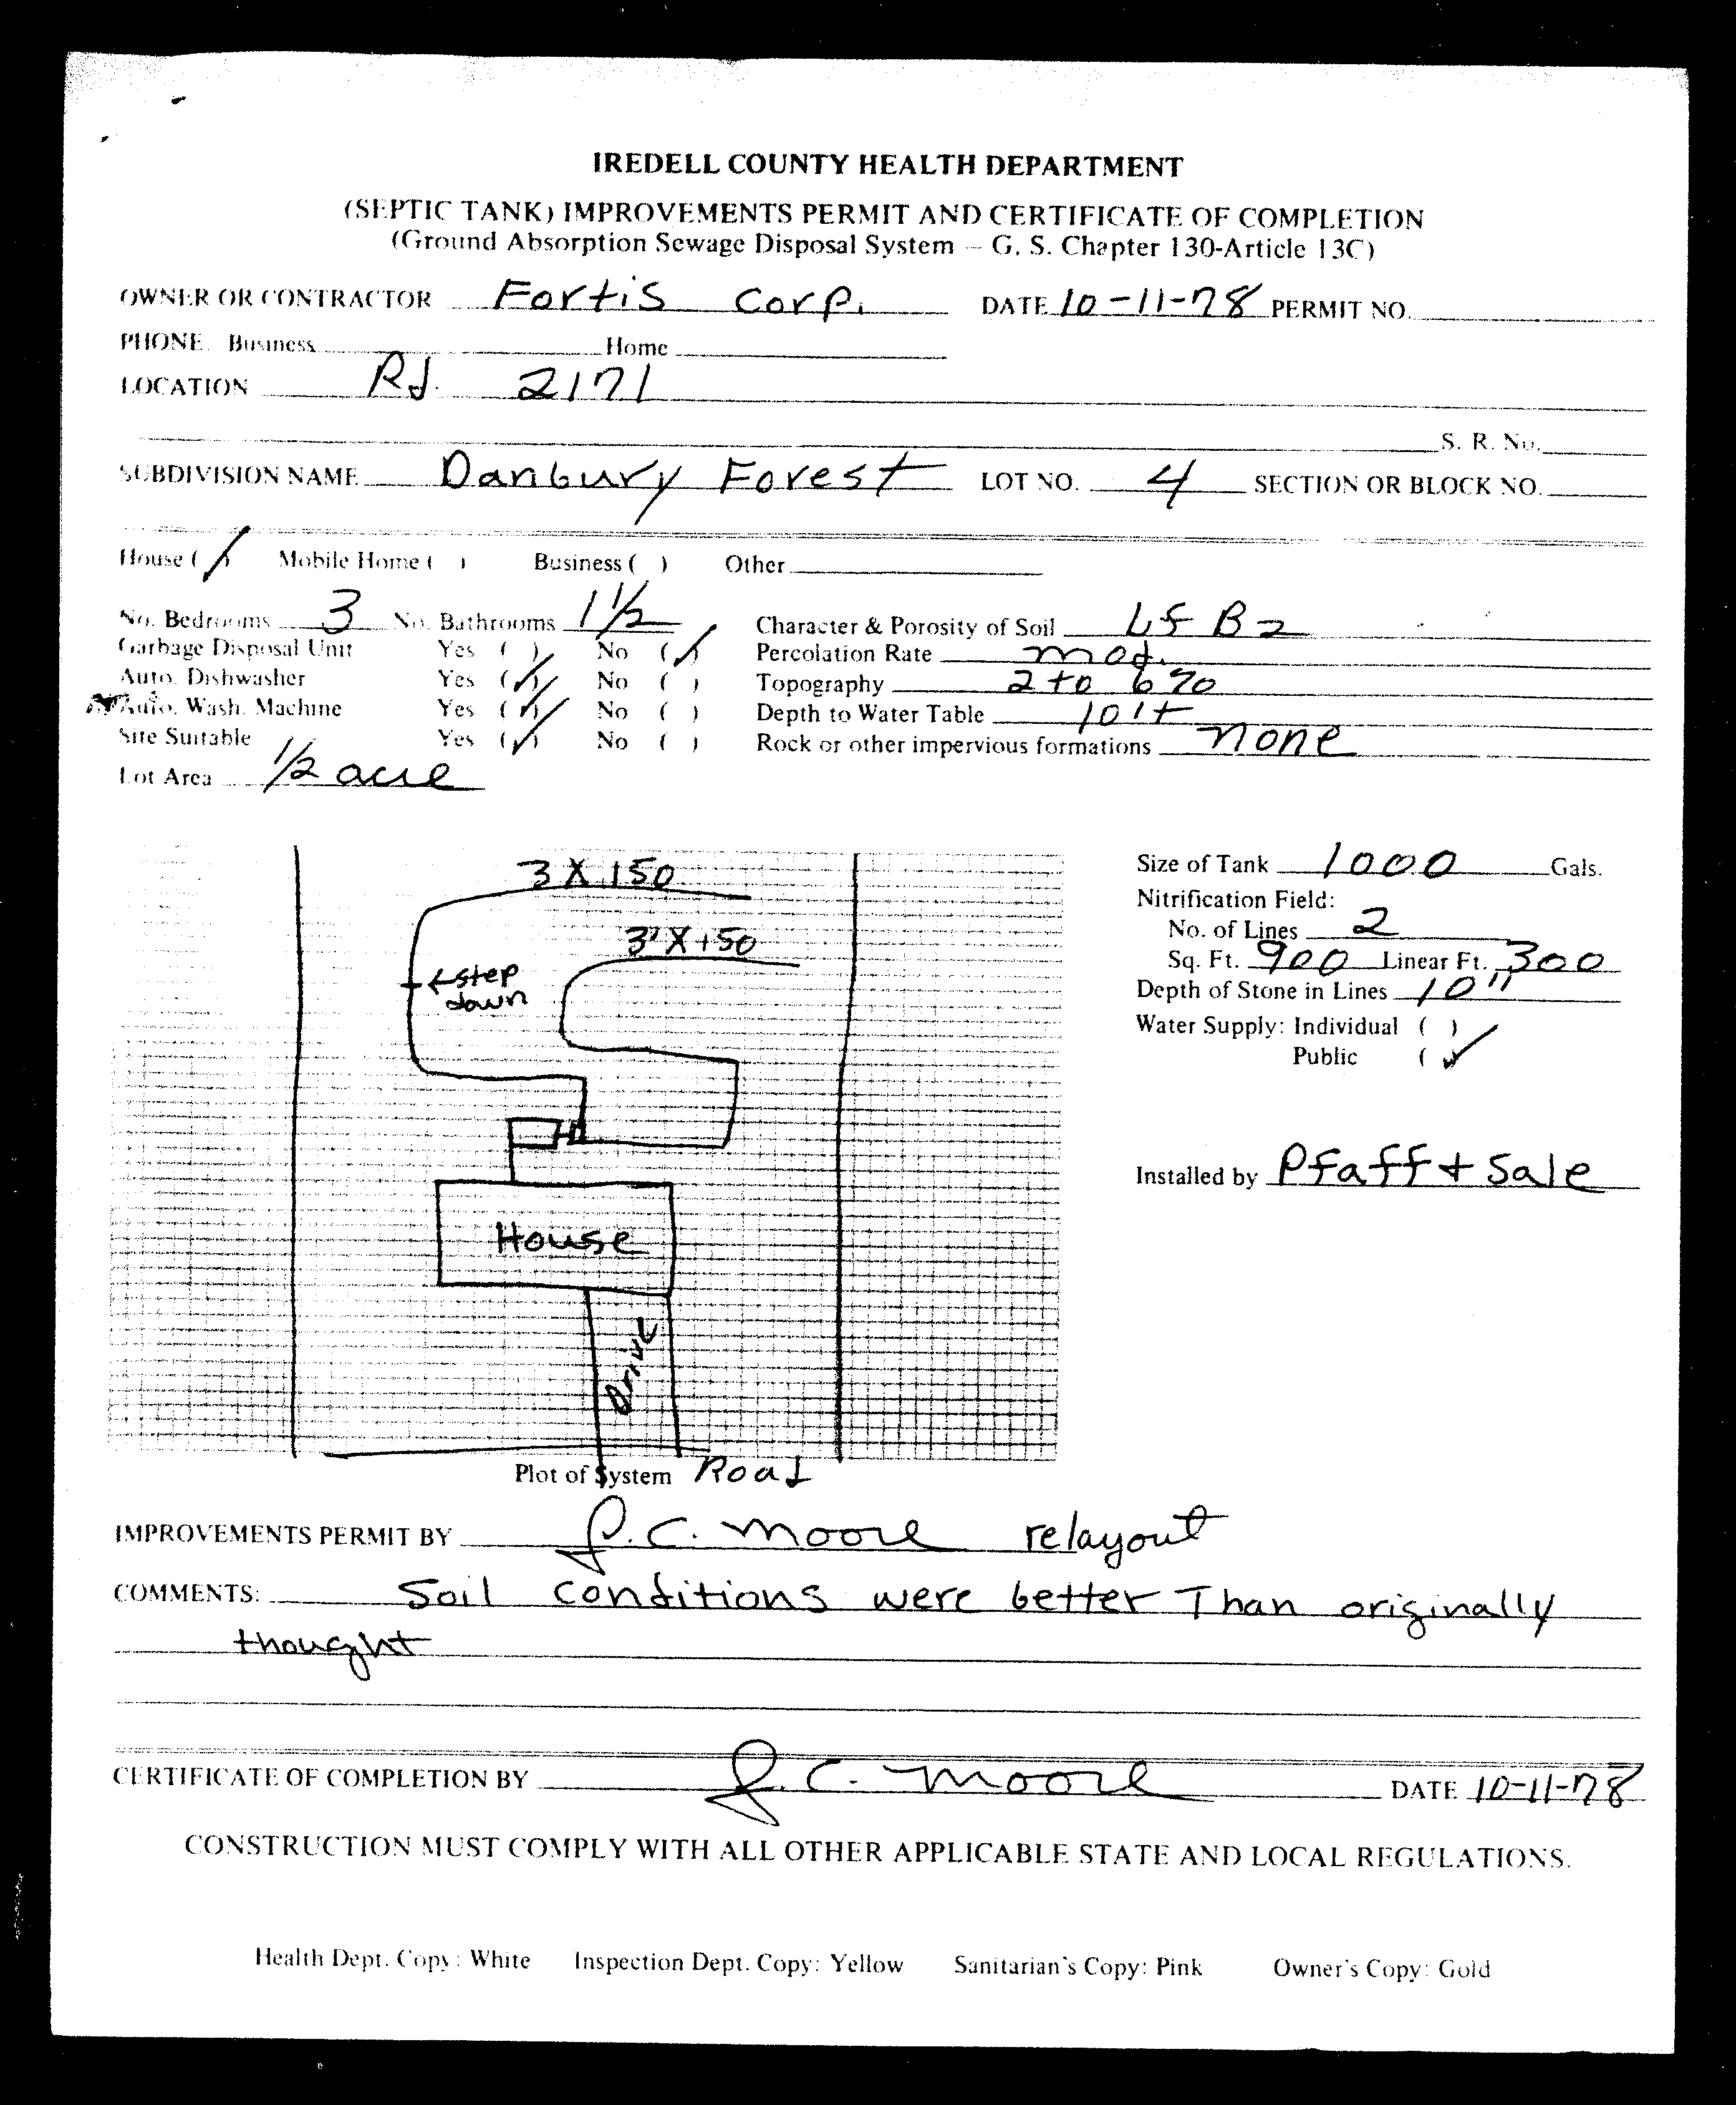 IREDELL COUNTY HEALTH DEPARTMENT
(SEPTIC TANK) IMPROVEMENTS PERMIT AND CERTIFICATE OF COMPLETION
(Ground Absorption Sewage Disposal System – G. S. Chapter 130-Article 13C)
OWNER OR CONTRACTOR Fortis Corp. DATE 10-11-78 PERMIT NO.
PHONE: Business Home
LOCATION Rd. 2171
S. R. No.
SUBDIVISION NAME Danbury Forest LOT NO. 4 SECTION OR BLOCK NO.
House (✓) Mobile Home ( ) Business ( ) Other
No. Bedrooms 3 No. Bathrooms 1 1/2 Character & Porosity of Soil LF B2
Garbage Disposal Unit Yes ( ) No (✓) Percolation Rate mod.
Auto. Dishwasher Yes (✓) No ( ) Topography 2 to 6%
Auto. Wash. Machine Yes (✓) No ( ) Depth to Water Table 10'+
Site Suitable Yes (✓) No ( ) Rock or other impervious formations none
Lot Area 1/2 acre
3 X 150
3' X 150
←step
down
House
Drive
Size of Tank 1000 Gals.
Nitrification Field:
No. of Lines 2
Sq. Ft. 900 Linear Ft. 300
Depth of Stone in Lines 10"
Water Supply: Individual ( )
Public (✓)
Installed by Pfaff + Sale
Plot of System Road
IMPROVEMENTS PERMIT BY J.C. Moore relayout
COMMENTS: Soil conditions were better Than originally
thought
CERTIFICATE OF COMPLETION BY J.C. Moore DATE 10-11-78
CONSTRUCTION MUST COMPLY WITH ALL OTHER APPLICABLE STATE AND LOCAL REGULATIONS.
Health Dept. Copy: White Inspection Dept. Copy: Yellow Sanitarian's Copy: Pink Owner's Copy: Gold